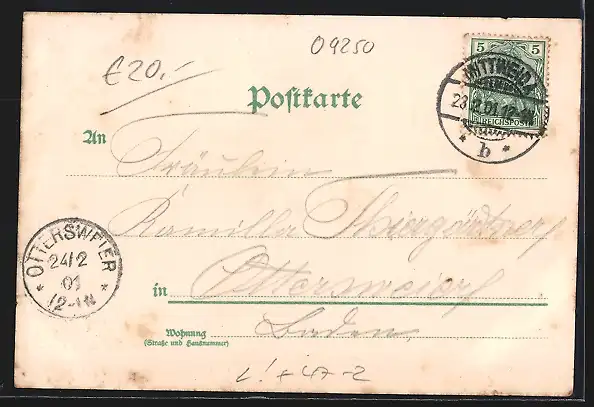 £20.-
09250
Postkarte
5 5
REICHSPOST
MITTWEIDA
23.2.01.12-1N
* b *
An
Fräulein
Kamilla Thiergärtner
in Ottersweier
Baden
Wohnung
(Straße und Hausnummer)
OTTERSWEIER
24/2
01
12-1N
L! + 47-2